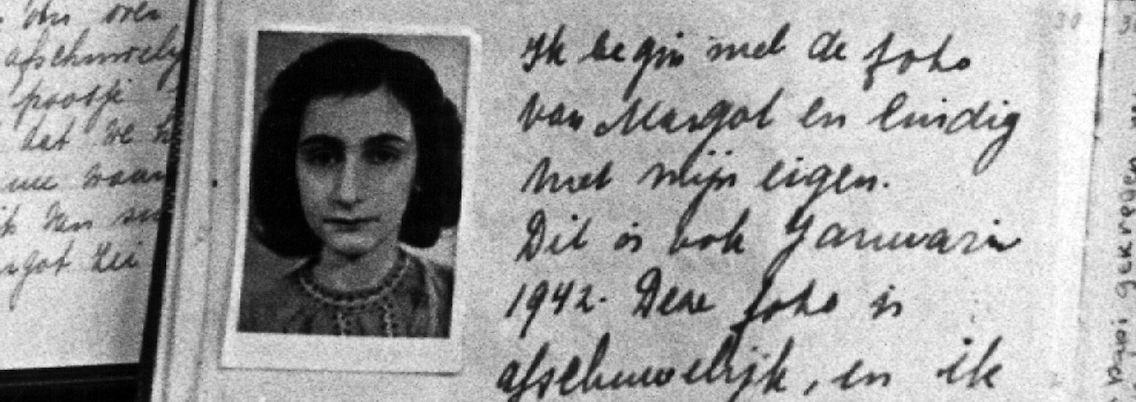 afschuwelij
poosje
dat we
me waar
rgot zei
Ik begin met de foto
van Margot en eindig
met mijn eigen.
Dit is ook Januari
1942. Deze foto is
afschuwelijk, en ik
30
gekregen